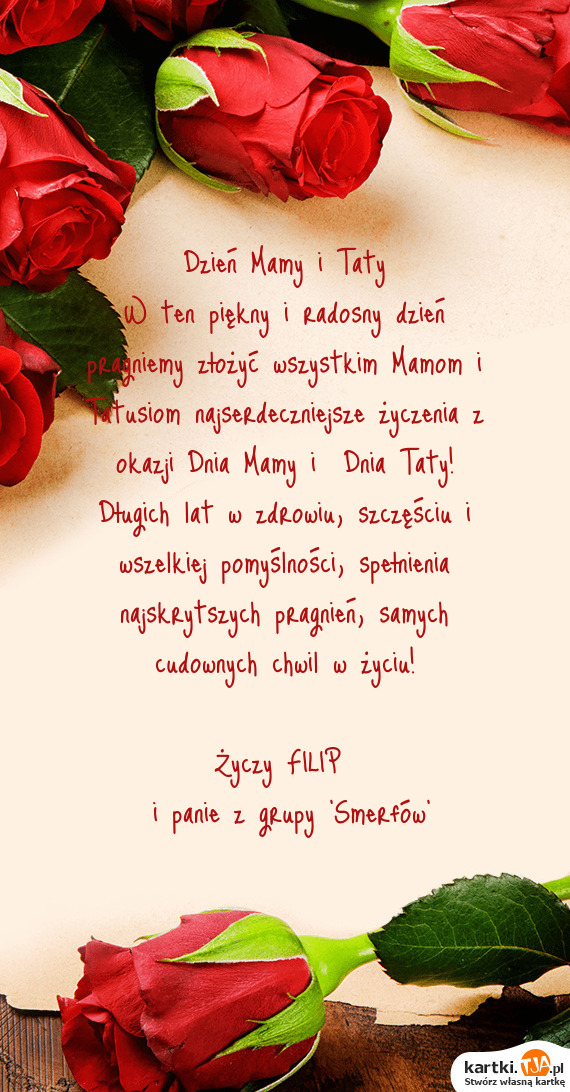 Dzień Mamy i Taty
W ten piękny i radosny dzień
pragniemy złożyć wszystkim Mamom i
Tatusiom najserdeczniejsze życzenia z
okazji Dnia Mamy i Dnia Taty!
Długich lat w zdrowiu, szczęściu i
wszelkiej pomyślności, spełnienia
najskrytszych pragnień, samych
cudownych chwil w życiu!
Życzy FILIP
i panie z grupy 'Smerfów'
kartki.TJA.pl
Stwórz własną kartkę